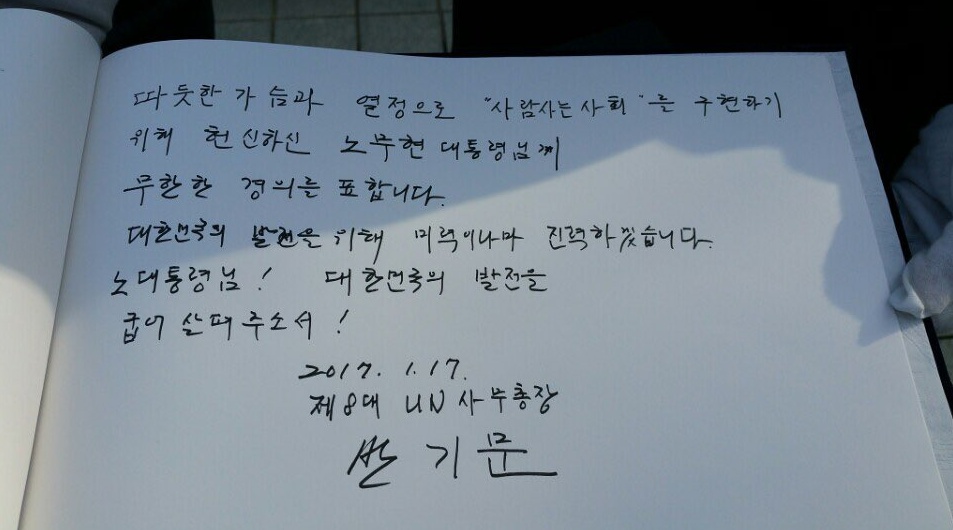 따뜻한 가슴과 열정으로 "사람사는 사회"를 구현하기
위해 헌신하신 노무현 대통령님께
무한한 경의를 표합니다.
대한민국의 발전을 위해 미력이나마 진력하겠습니다.
노대통령님! 대한민국의 발전을
굽어 살펴주소서!
2017. 1. 17.
제8대 UN 사무총장
반기문